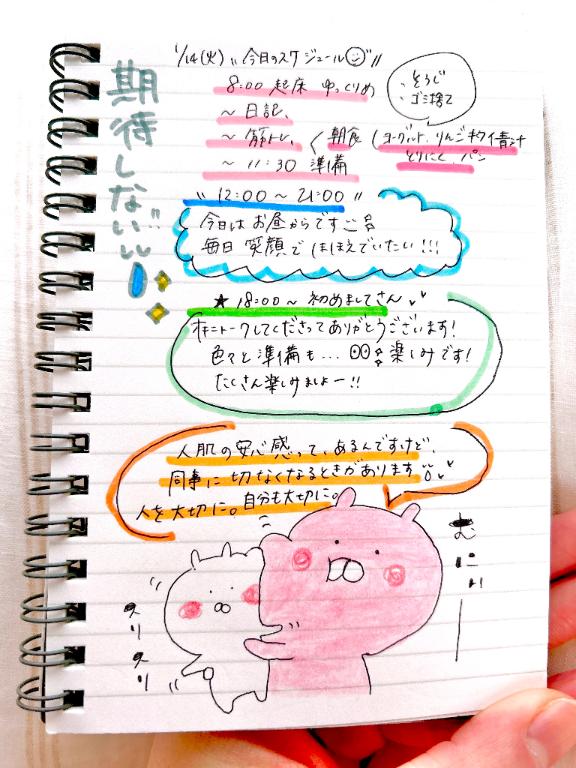 1/14(火) 〃今日のスケジュール〃
期待しない!!
8:00 起床 ゆっくりめ
・そうじ
・ゴミ捨て
〜日記、
〜筋トレ、〈朝食(ヨーグルト、りんご 青汁
とりにく、パン
〜11:30 準備
〃12:00〜21:00〃
今日はお昼からですご
毎日笑顔でほほえでいたい!!!
★18:00〜初めましてさん
オキニトークしてくださってありがとうございます!
色々と準備も… 楽しみです!
たくさん楽しみましょー!!
人肌の安心感って、あるんですけど、
同時に切なくなるときがあります
人を大切に。自分も大切に。
むにぃ
スリスリ